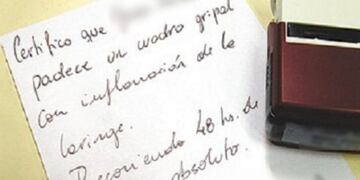 Certifico que
padece un cuadro gripal
con inflamación de la
laringe.
Recomiendo 48 hs. de
absoluto.